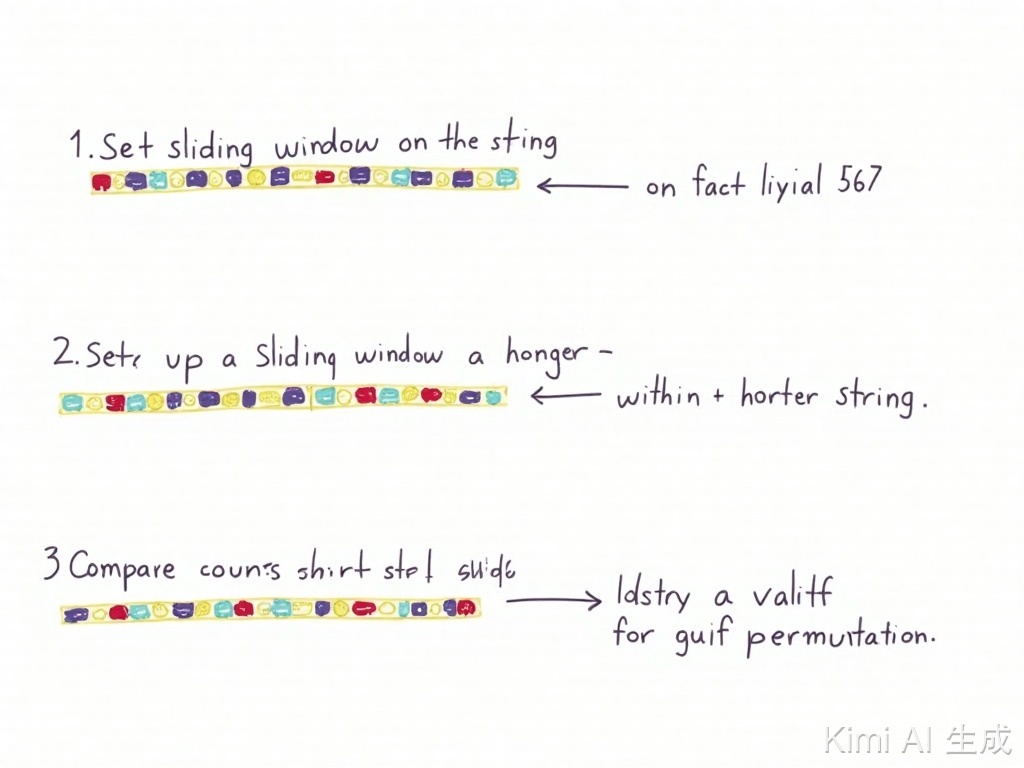 1. Set sliding window on the sting
on fact liyial 567
2. Sets up a Sliding window a honger –
within + horter string.
3 Compare couns shirt stel slide
ldstry a valiff
for guif permutation.
Kimi AI 生成